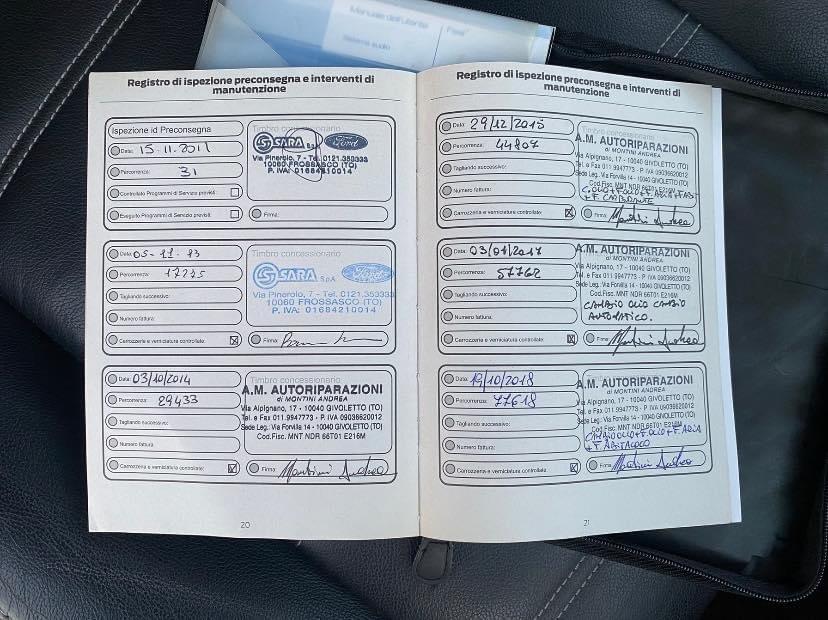 Manuale dell'utente
Sistema audio
Registro di ispezione preconsegna e interventi di
manutenzione
Ispezione id Preconsegna
Data: 15-11-2011
Percorrenza: 31
Controllato Programmi di Servizio previsti:
Eseguite Programmi di Servizio previsti:
Timbro concessionario
SARA S.p.A. Ford
Via Pinerolo, 7 - Tel. 0121.353333
10060 FROSSASCO (TO)
P. IVA: 01684210014
Firma:
Data: 05-11-13
Percorrenza: 17235
Tagliando successivo:
Numero fattura:
Carrozzeria e verniciatura controllate:
Timbro concessionario
SARA S.p.A. Ford
Via Pinerolo, 7 - Tel. 0121.353333
10060 FROSSASCO (TO)
P. IVA: 01684210014
Firma:
Data: 03/10/2014
Percorrenza: 29433
Tagliando successivo:
Numero fattura:
Carrozzeria e verniciatura controllate:
Timbro concessionario
A.M. AUTORIPARAZIONI
di MONTINI ANDREA
Via Alpignano, 17 - 10040 GIVOLETTO (TO)
Tel. e Fax 011 9947773 - P. IVA 09036620012
Sede Leg.: Via Forvilla 14 - 10040 GIVOLETTO (TO)
Cod. Fisc. MNT NDR 66T01 E216M
Firma: Montini Andrea
20
Registro di ispezione preconsegna e interventi di
manutenzione
Data: 29/12/2015
Percorrenza: 44807
Tagliando successivo:
Numero fattura:
Carrozzeria e verniciatura controllate:
Timbro concessionario
A.M. AUTORIPARAZIONI
di MONTINI ANDREA
Via Alpignano, 17 - 10040 GIVOLETTO (TO)
Tel. e Fax 011 9947773 - P. IVA 09036620012
Sede Leg. Via Forvilla 14 - 10040 GIVOLETTO (TO)
Cod. Fisc. MNT NDR 66T01 E216M
+ F. CARBURANTE
Firma: Montini Andrea
Data: 03/01/2017
Percorrenza: 57762
Tagliando successivo:
Numero fattura:
Carrozzeria e verniciatura controllate:
A.M. AUTORIPARAZIONI
di MONTINI ANDREA
Via Alpignano, 17 - 10040 GIVOLETTO (TO)
Tel. e Fax 011 9947773 - P. IVA 09036620012
Sede Leg.: Via Forvilla 14 - 10040 GIVOLETTO (TO)
Cod. Fisc. MNT NDR 66T01 E216M
CAMBIO OLIO CAMBIO
AUTOMATICO.
Firma: Montini Andrea
Data: 19/10/2018
Percorrenza: 77618
Tagliando successivo:
Numero fattura:
Carrozzeria e verniciatura controllate:
Timbro concessionario
A.M. AUTORIPARAZIONI
di MONTINI ANDREA
Via Alpignano, 17 - 10040 GIVOLETTO (TO)
Tel. e Fax 011 9947773 - P. IVA 09036620012
Sede Leg.: Via Forvilla 14 - 10040 GIVOLETTO (TO)
Cod. Fisc. MNT NDR 66T01 E216M
CAMBIO OLIO + F. OLIO + F. ARIA
+ F. ABITACOLO
Firma: Montini Andrea
21